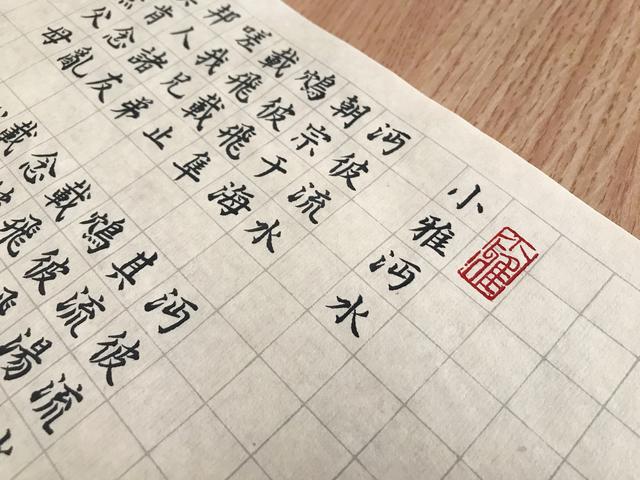 小雅
小雅 沔水
沔彼流水
朝宗于海
鴥彼飛隼
載飛載止
嗟我兄弟
邦人諸友
肯念亂
父母
沔彼流水
其流湯
鴥彼飛
載飛
念
載